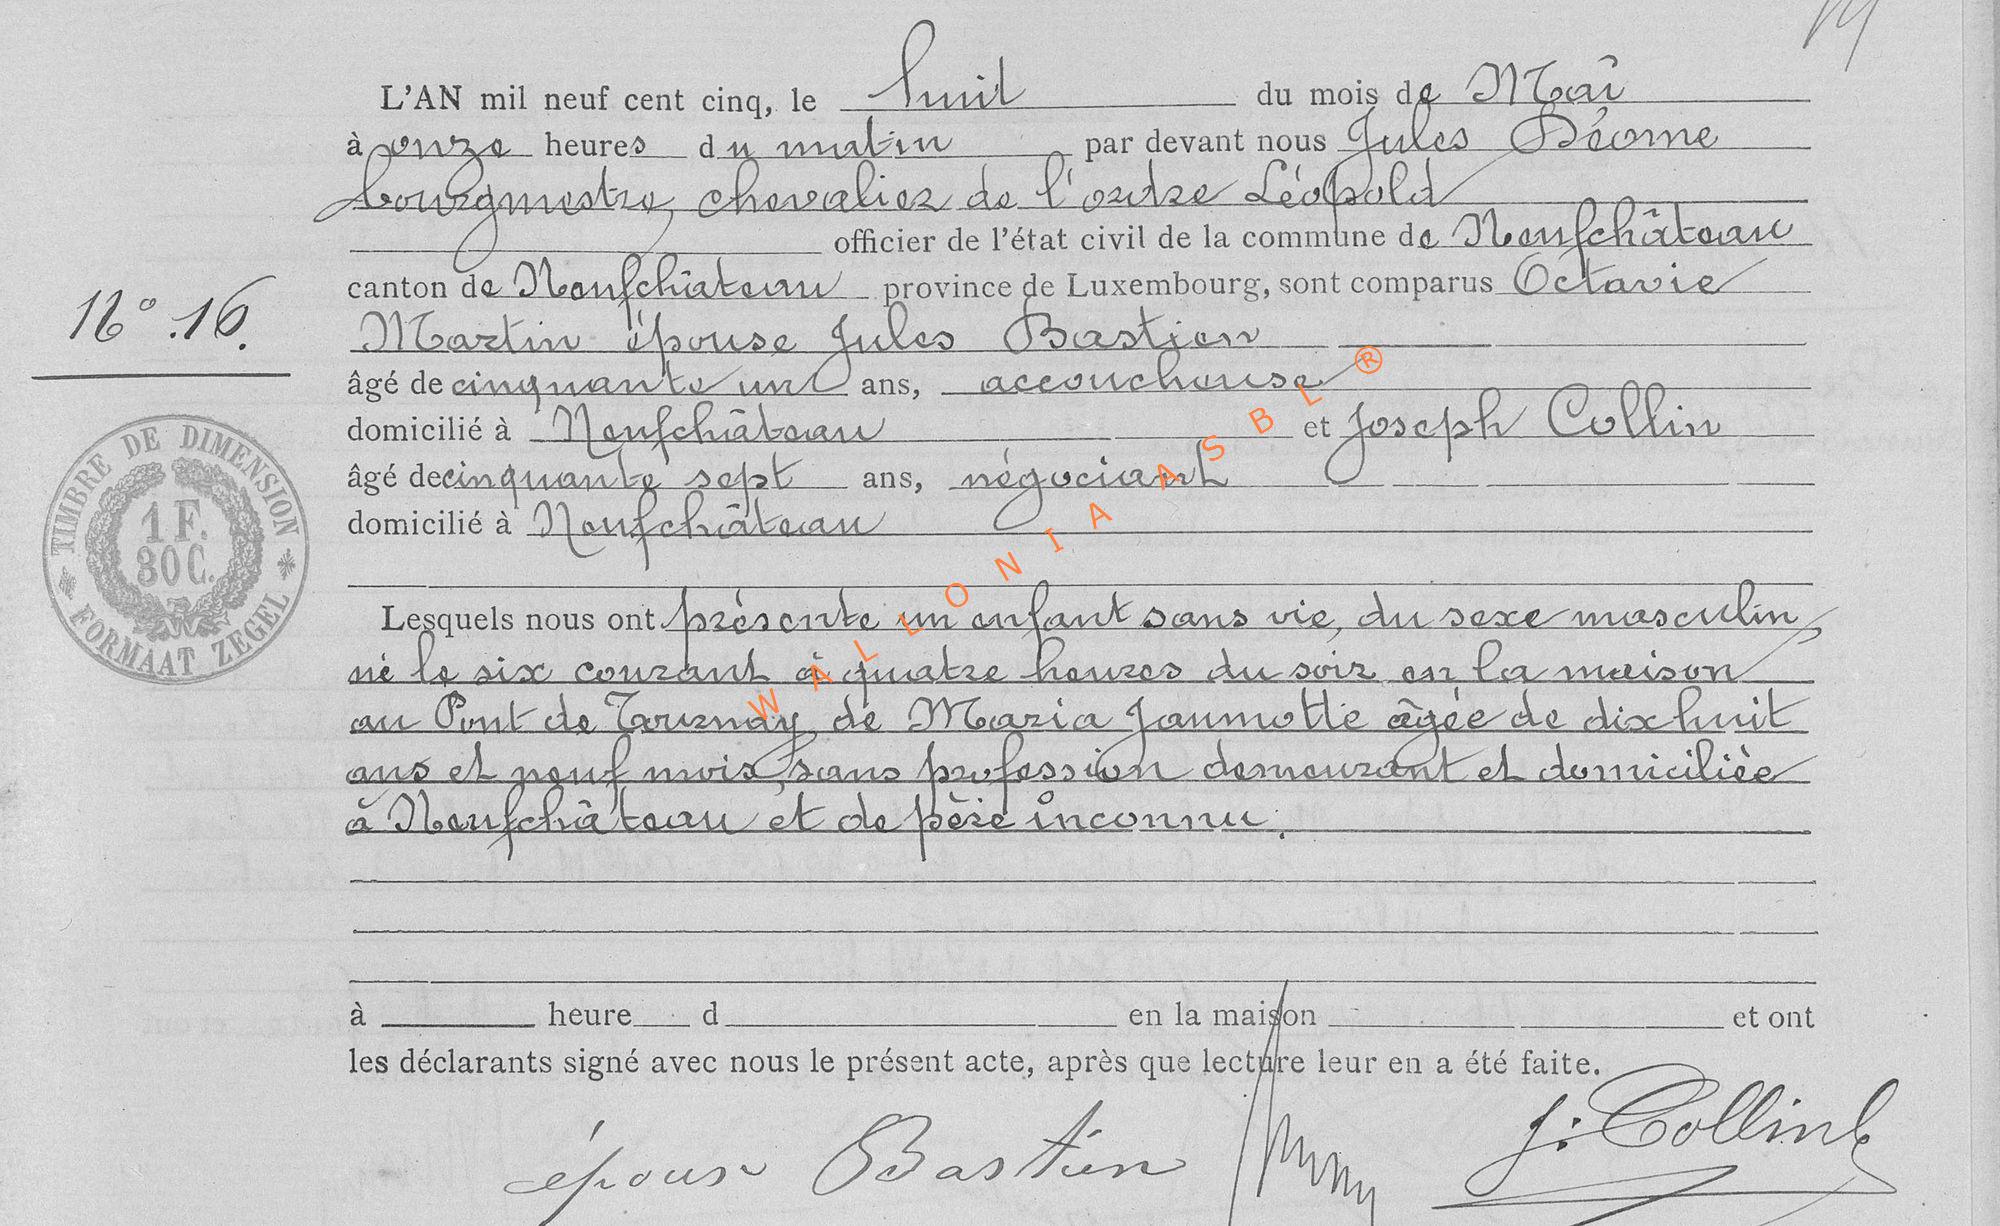 L'AN mil neuf cent cinq, le huit du mois de Maî
à onze heures du matin par devant nous Jules Déome
bourgmestre, chevalier de l'ordre Léopold
officier de l'état civil de la commune de Neufchâteau
canton de Neufchâteau province de Luxembourg, sont comparus Octavie
N° 16.
Martin épouse Jules Bastien
âgé de cinquante un ans, accoucheuse
domicilié à Neufchâteau et Joseph Collin
âgé de cinquante sept ans, négociant
domicilié à Neufchâteau
TIMBRE DE DIMENSION
1 F.
80 C.
FORMAAT ZEGEL
WALLONIA ASBL ®
Lesquels nous ont présenté un enfant sans vie, du sexe masculin,
né le six courant à quatre heures du soir en la maison
au Pont de Tournay, de Maria Jaumotte âgée de dix huit
ans et neuf mois, sans profession demeurant et domiciliée
à Neufchâteau et de père inconnu.
à heure d en la maison et ont
les déclarants signé avec nous le présent acte, après que lecture leur en a été faite.
épouse Bastien
J: Collin